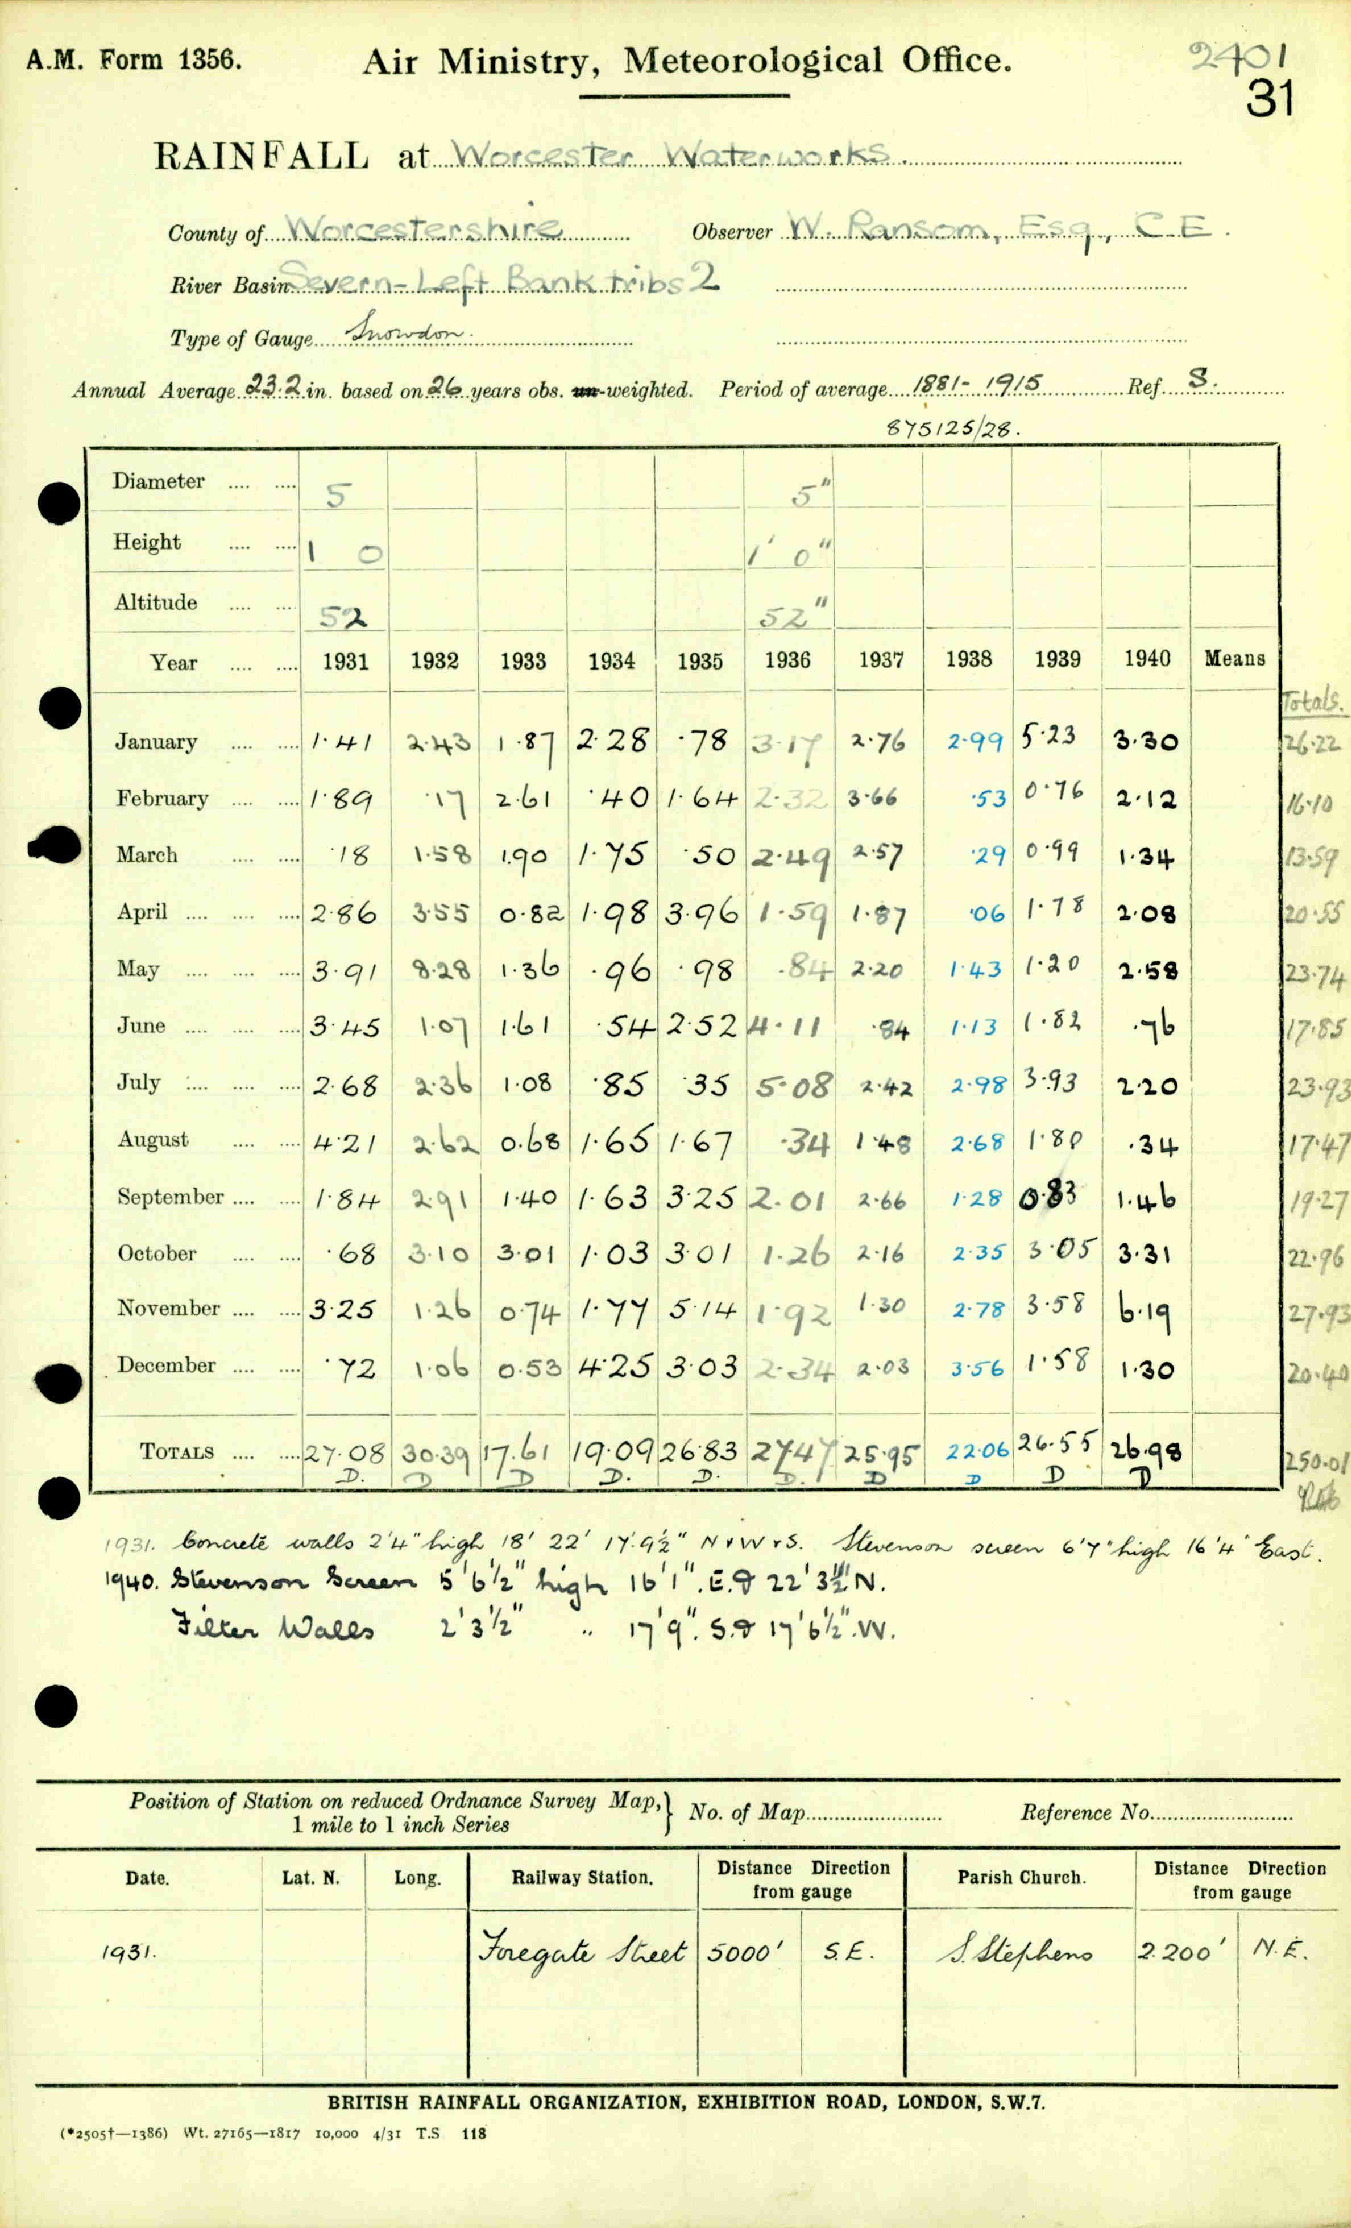 A.M. Form 1356.
Air Ministry, Meteorological Office.
2401
31
RAINFALL at Worcester Waterworks.
County of Worcestershire Observer W. Ransom, Esq., C.E.
River Basin Severn-Left Bank tribs 2
Type of Gauge Snowdon.
Annual Average 23.2 in. based on 26 years obs. un-weighted. Period of average 1881-1915 Ref. S.
875125/28.
Diameter .... .... 5 5"
Height .... .... 1 0 1' 0"
Altitude .... .... 52 52"
Year .... .... 1931 1932 1933 1934 1935 1936 1937 1938 1939 1940 Means
Totals.
January .... .... 1.41 2.43 1.87 2.28 .78 3.17 2.76 2.99 5.23 3.30 26.22
February .... .... 1.89 .17 2.61 .40 1.64 2.32 3.66 .53 0.76 2.12 16.10
March .... .... .18 1.58 1.90 1.75 .50 2.49 2.57 .29 0.99 1.34 13.59
April .... .... .... 2.86 3.55 0.82 1.98 3.96 1.59 1.87 .06 1.78 2.08 20.55
May .... .... .... 3.91 8.28 1.36 .96 .98 .84 2.20 1.43 1.20 2.58 23.74
June .... .... .... 3.45 1.07 1.61 .54 2.52 4.11 .84 1.13 1.82 .76 17.85
July .... .... .... 2.68 2.36 1.08 .85 .35 5.08 2.42 2.98 3.93 2.20 23.93
August .... .... 4.21 2.62 0.68 1.65 1.67 .34 1.48 2.68 1.80 .34 17.47
September .... .... 1.84 2.91 1.40 1.63 3.25 2.01 2.66 1.28 0.83 1.46 19.27
October .... .... .68 3.10 3.01 1.03 3.01 1.26 2.16 2.35 3.05 3.31 22.96
November .... .... 3.25 1.26 0.74 1.77 5.14 1.92 1.30 2.78 3.58 6.19 27.93
December .... .... .72 1.06 0.53 4.25 3.03 2.34 2.03 3.56 1.58 1.30 20.40
TOTALS .... .... 27.08 30.39 17.61 19.09 26.83 27.47 25.95 22.06 26.55 26.98 250.01
D. D D D. D. D. D D D D
1931. Concrete walls 2'4" high 18' 22' 17'.9½" N+W+S. Stevenson screen 6'7" high 16'4" East.
1940. Stevenson Screen 5'6½" high 16'1". E. & 22'3½" N.
Filter Walls 2'3½" " 17'9". S. & 17'6½". W.
Position of Station on reduced Ordnance Survey Map, } No. of Map Reference No.
1 mile to 1 inch Series
Date. Lat. N. Long. Railway Station. Distance Direction from gauge Parish Church. Distance Direction from gauge
1931. Foregate Street 5000' S.E. S. Stephens 2.200' N.E.
BRITISH RAINFALL ORGANIZATION, EXHIBITION ROAD, LONDON, S.W.7.
(*2505†—1386) Wt. 27165—1817 10,000 4/31 T.S 118